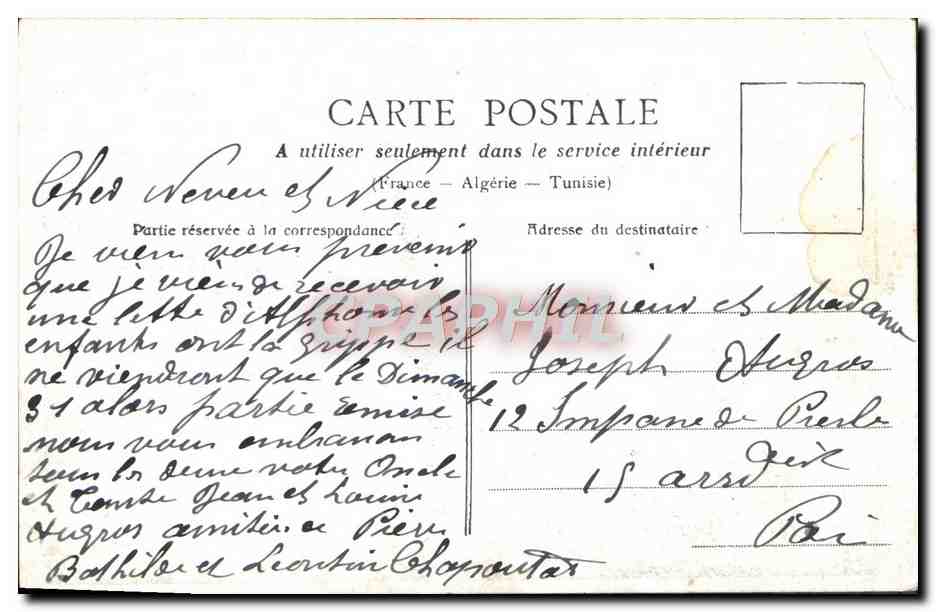 CARTE POSTALE
A utiliser seulement dans le service intérieur
(France — Algérie — Tunisie)
Partie réservée à la correspondance
Adresse du destinataire
Cher Neveu et Niece
Je viens vous prévenir
que je viens de recevoir
une lette d'Alphonse les
enfants ont la grippe il
ne viendront que le Dimanche
31 alors partie remise
nous vous embrassons
tous les deux votre Oncle
et Tante Jean et Louise
Augros amitiés a Pierre
Bathilde et Leontin Chapoutat
Monsieur et Madame
Joseph Augros
12 Impasse de Presle
15 arrd
Paris
CPAPHIL